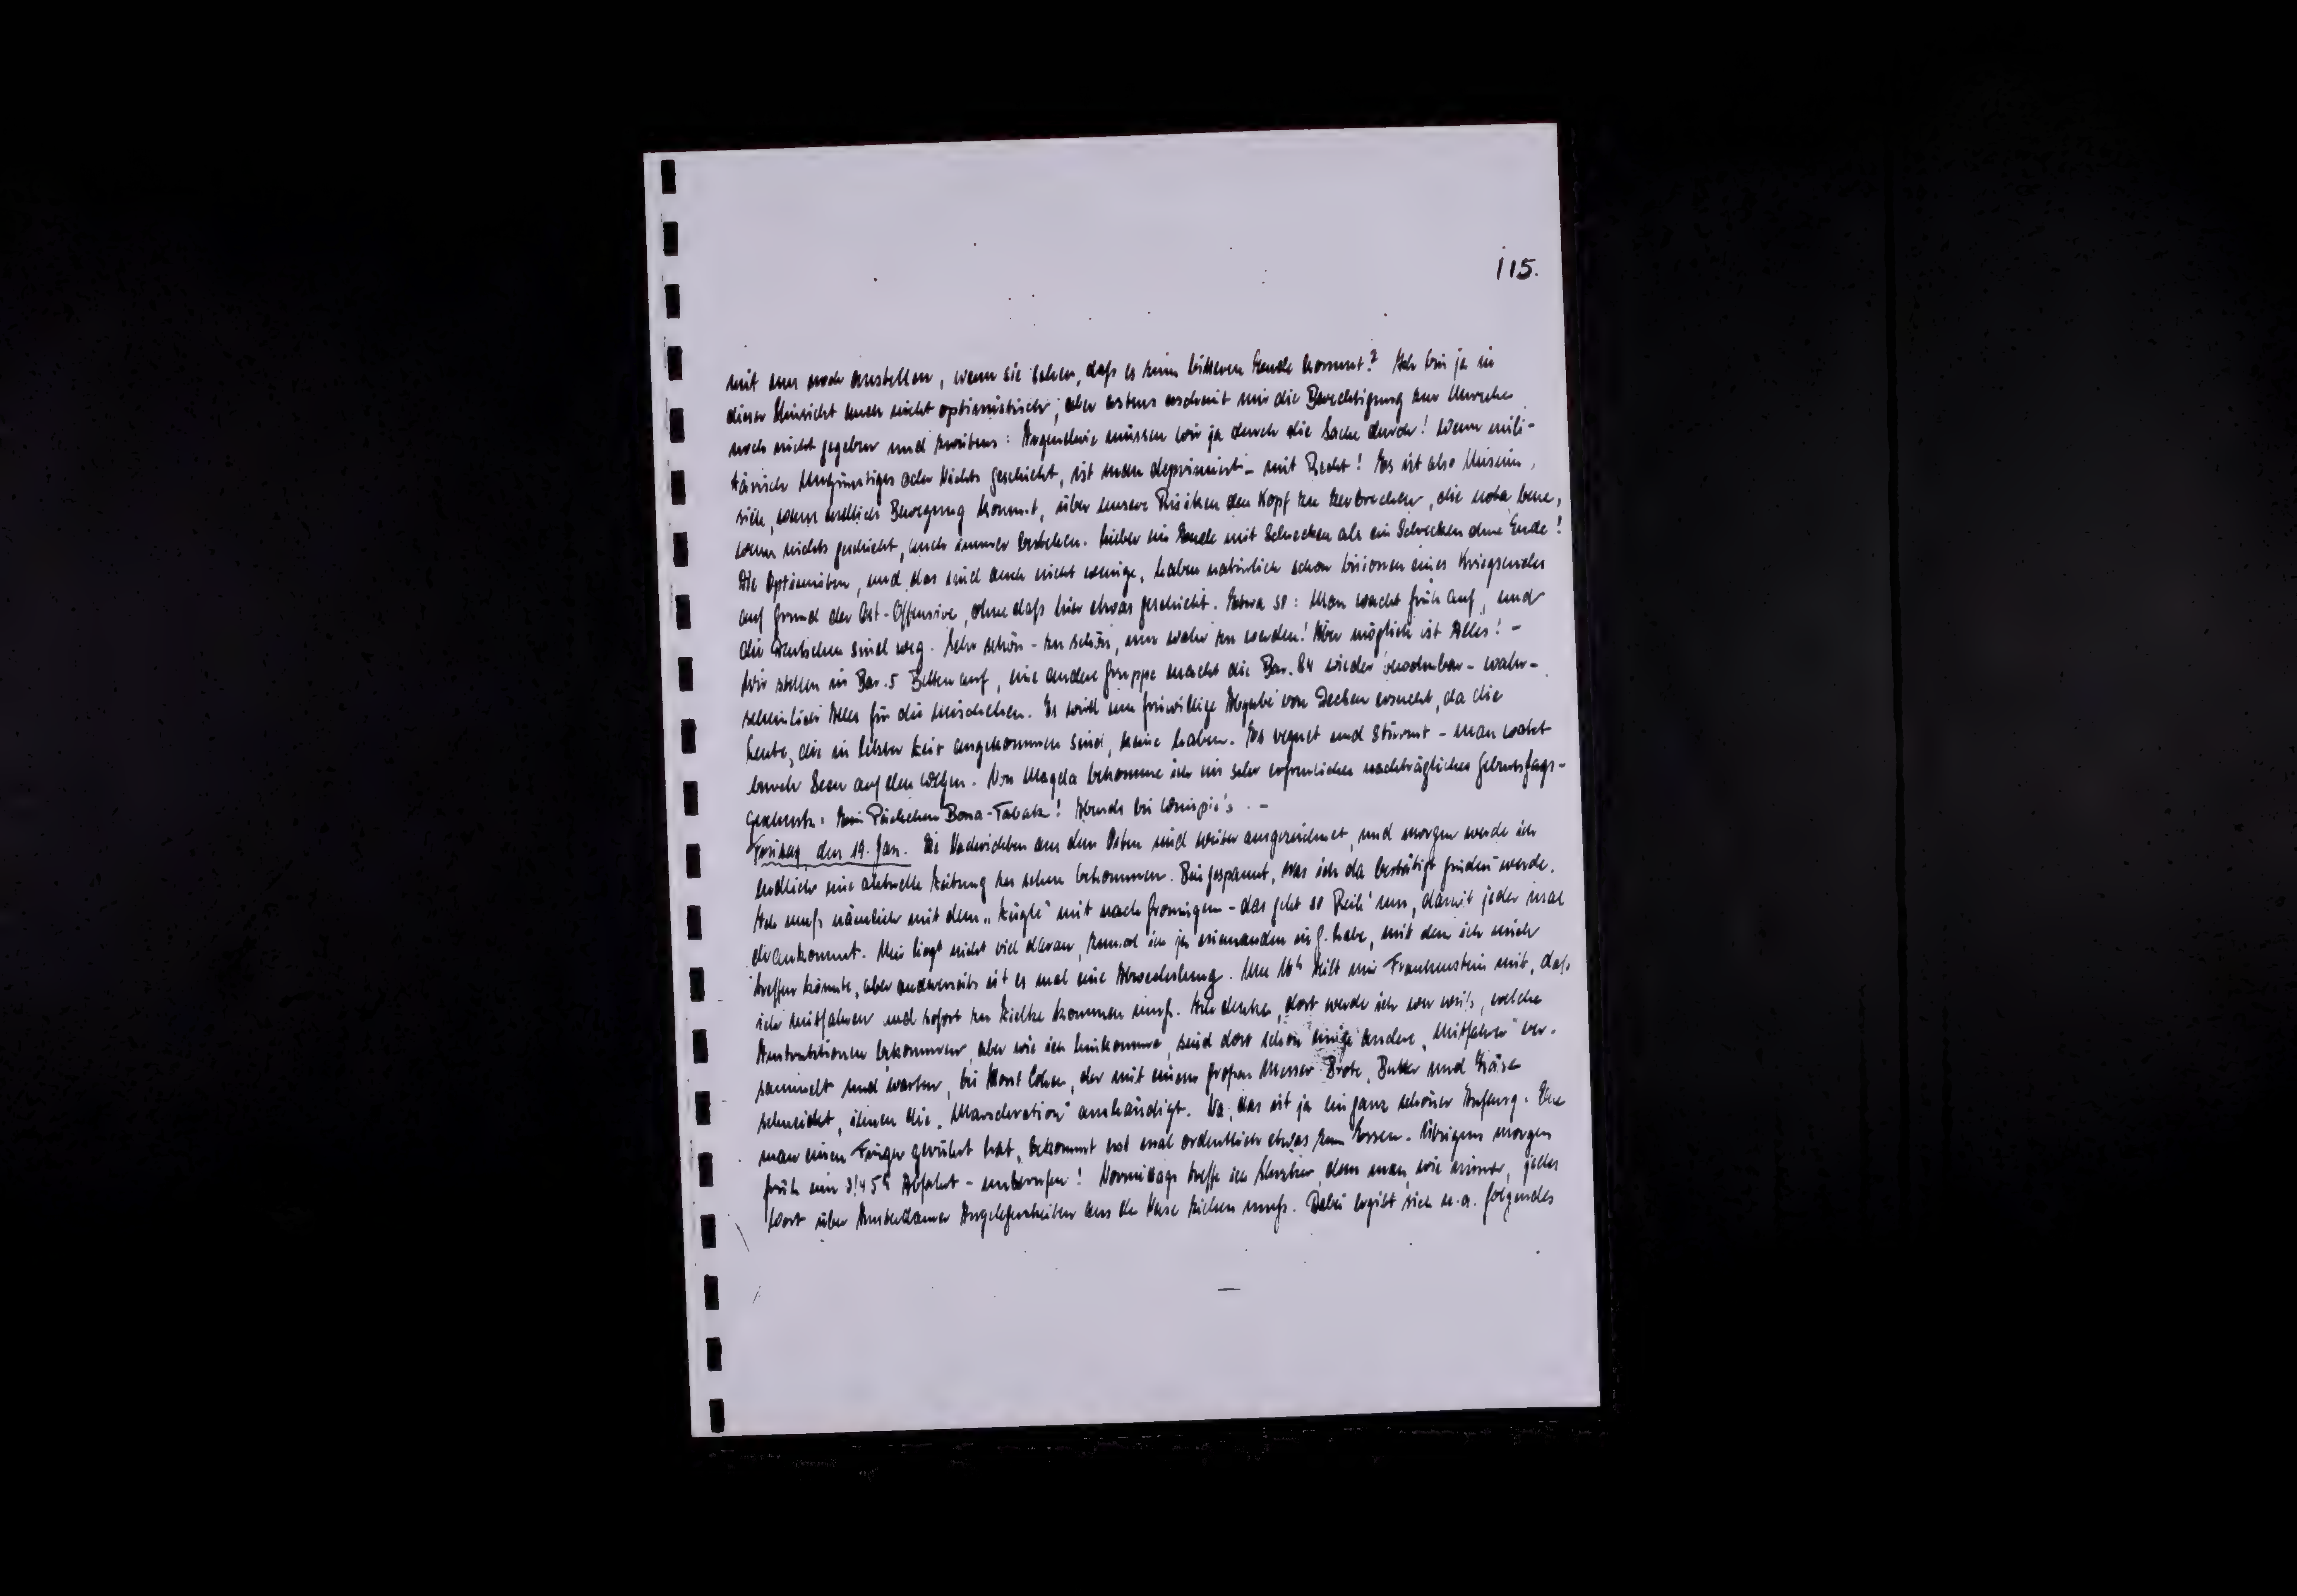 115.
mit uns noch anstellen, wenn sie sehen, daß es zum bitteren Ende kommt? Ich bin ja in
dieser Hinsicht auch nicht optimistisch; aber erstens erscheint mir die Berechtigung zur Unruhe
noch nicht gegeben und zweitens: Irgendwie müssen wir ja durch die Sache durch! Wenn mili-
tärisch Ungünstiges oder Nichts geschieht, ist man deprimiert - mit Recht! Es ist also Unsinn,
sich, wenn endlich Bewegung kommt, über unsere Risiken den Kopf zu zerbrechen, die nota bene,
wenn nichts geschieht, auch immer bestehen. Lieber ein Ende mit Schrecken als ein Schrecken ohne Ende!
Die Optimisten, und das sind auch nicht wenige, haben natürlich schon Visionen eines Kriegsendes
auf Grund der Ost-Offensive, ohne daß hier etwas geschieht. Etwa so: Man wacht früh auf, und
die Deutschen sind weg. Sehr schön - zu schön, um wahr zu werden! Aber möglich ist Alles! -
Wir stellen in Bar. 5 Betten auf, eine andere Gruppe macht die Bar. 84 wieder bewohnbar - wahr-
scheinlich Alles für die Mischehen. Es wird um freiwillige Abgabe von Decken ersucht, da die
Leute, die in letzter Zeit angekommen sind, keine haben. Es regnet und stürmt - man watet
durch Seen auf den Wegen. Von Magda bekomme ich ein sehr erfreuliches nachträgliches Geburtstags-
geschenk: Ein Päckchen Bona-Tabak! Abends bei . -
Freitag, den 19. Jan. Die Nachrichten aus dem Osten sind weiter ausgezeichnet, und morgen werde ich
endlich eine aktuelle Zeitung zu sehen bekommen. Bin gespannt, was ich da bestätigt finden werde.
Ich muß nämlich mit dem „Zügle" mit nach Groningen - das geht so Reih' um, damit jeder mal
drankommt. Mir liegt nicht viel daran, zumal ich ja niemanden in G. habe, mit dem ich mich
treffen könnte, aber andererseits ist es mal eine Abwechslung. Um 16h teilt mir Frankenstein mit, daß
ich mitfahren und sofort zu Zielke kommen muß. Ich denke, dort werde ich wer weiß, welche
Instruktionen bekommen, aber wie ich hinkomme, sind dort schon einige andere „Mitfahrer" ver-
sammelt und warten, bis Horst Cohen, der mit einem großen Messer Brote, Butter und Käse
schneidet, ihnen die „Marschration" aushändigt. Na, das ist ja ein ganz schöner Anfang. Ehe
man einen Finger gerührt hat, bekommt erst mal ordentlich etwas zum Essen. Übrigens morgen
früh um 3/4 5h Abfahrt - unberufen! Vormittags treffe ich, dem man, wie immer, jedes
Wort über Amsterdamer Angelegenheiten aus der Nase ziehen muß. Dabei ergibt sich u. a. folgendes